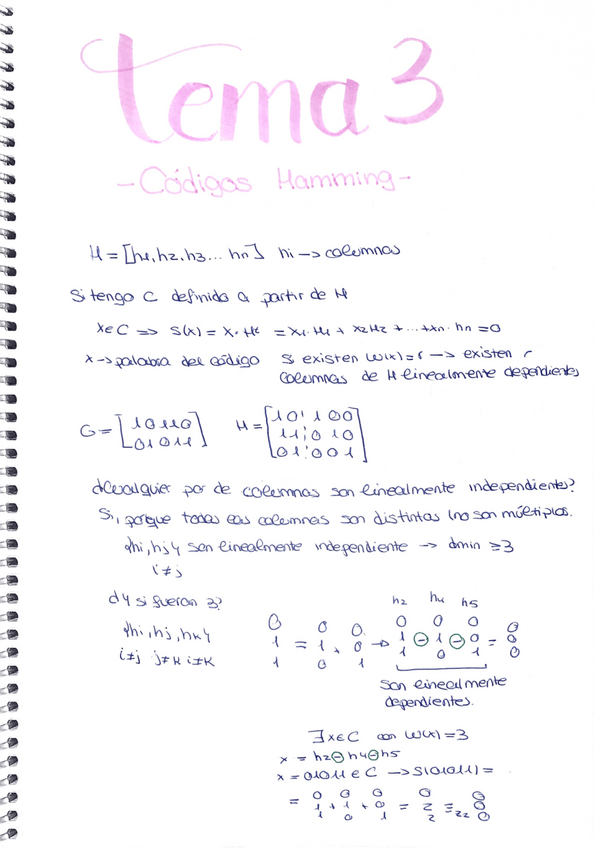 Tema 3
- Códigos Hamming -
H = [h1, h2, h3... hn] hi -> columnas
Si tengo C definido a partir de H
x∈C => S(x) = x·Hᵗ = x1·H1 + x2H2 + ... + xn·hn = 0
x -> palabra del código si existen w(x)=r -> existen r
columnas de H linealmente dependientes
G = [1 0 1 1 0
0 1 0 1 1] H = [1 0 1 0 0
1 1 0 1 0
0 1 0 0 1]
¿Cualquier par de columnas son linealmente independientes?
Si, porque todas las columnas son distintas (no son múltiplos.
{hi, hj} son linealmente independiente -> dmin ≥ 3
i≠j
¿Y si fueran 3?
{hi, hj, hk}
i≠j j≠k i≠k
h2 h4 h5
0 0 0 0 0 0 0
1 = 1 + 0 -> 1 ⊖ 1 ⊖ 0 = 0
1 0 1 1 0 1 0
son linealmente
dependientes.
∃x∈C con w(x)=3
x = h2⊖h4⊖h5
x = 01011 ∈ C -> S(01011) =
0 0 0 0 0
= 1 + 1 + 0 = 2 ≡ 0
1 0 1 2 z2 0